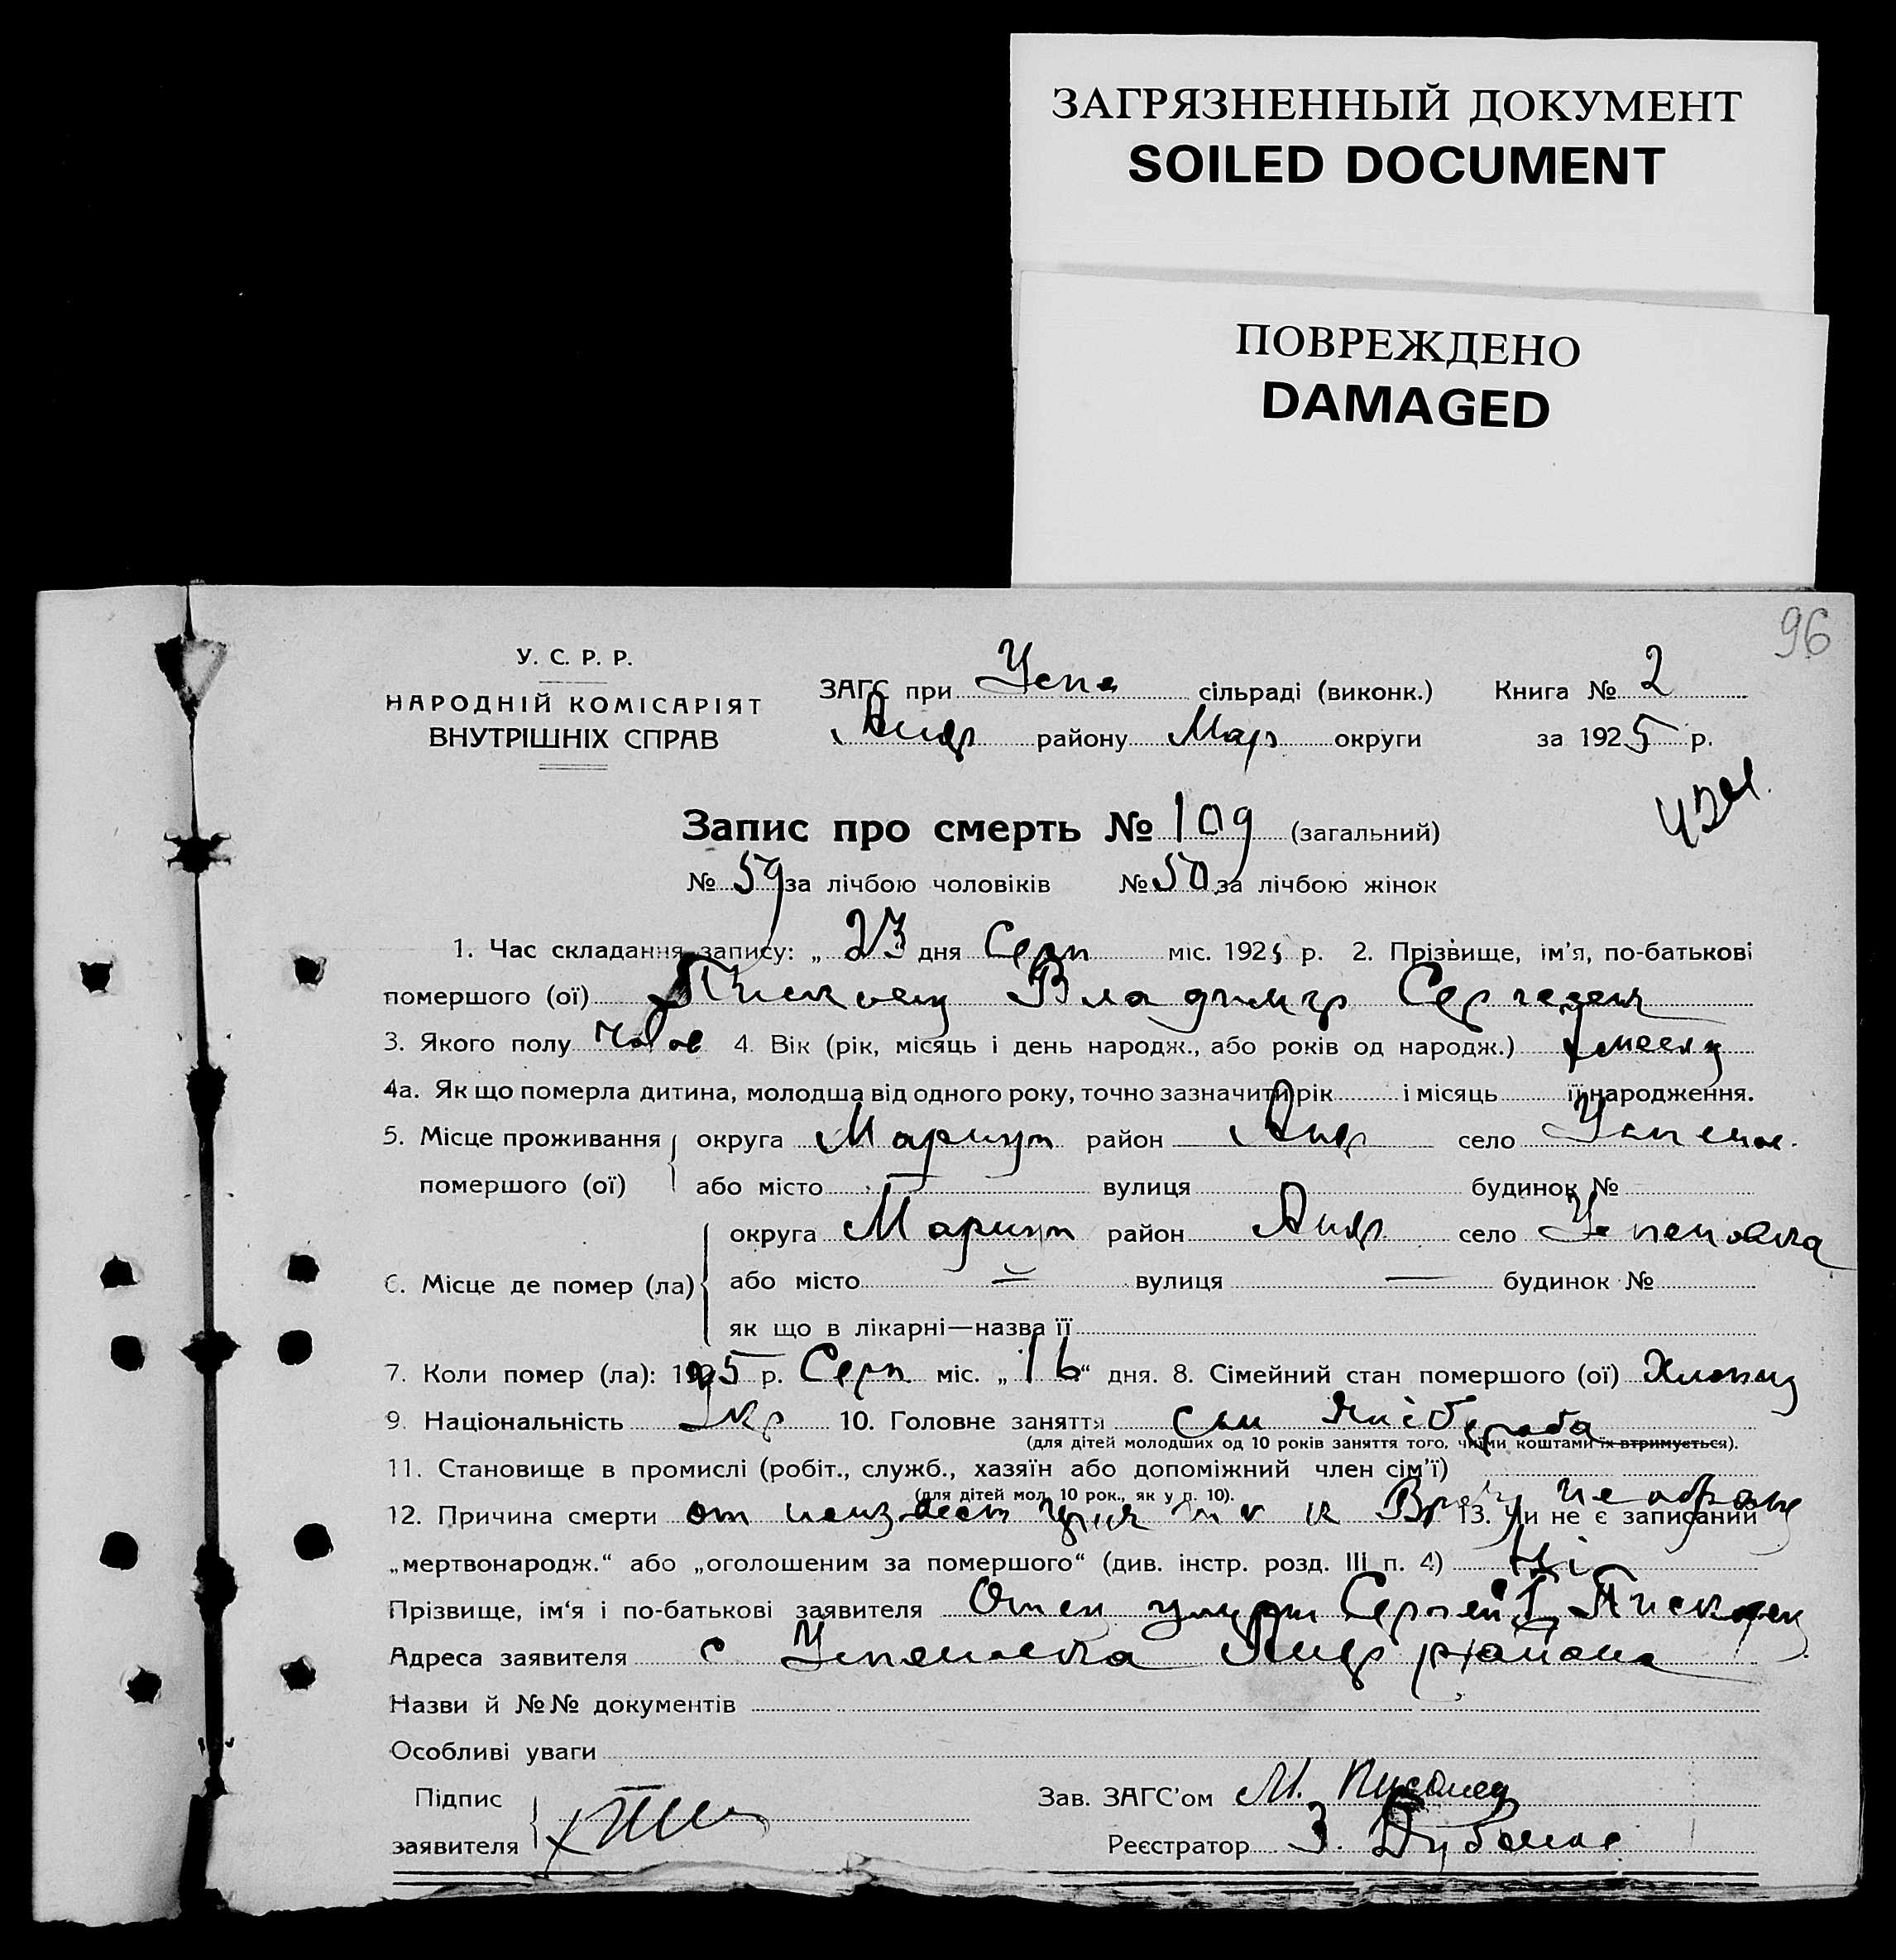 ЗАГРЯЗНЕННЫЙ ДОКУМЕНТ
SOILED DOCUMENT
ПОВРЕЖДЕНО
DAMAGED
96
У. С. Р. Р.
НАРОДНІЙ КОМІСАРІЯТ
ВНУТРІШНІХ СПРАВ
ЗАГС при Успе сільраді (виконк.) Книга № 2
Андр району Мар округи за 1925 р.
Запис про смерть № 109 (загальний)
№ 59 за лічбою чоловіків № 50 за лічбою жінок
1. Час складання запису: „ 23 дня Серп міс. 1925 р. 2. Прізвище, ім'я, по-батькові
помершого (ої) Владимир
3. Якого полу 4. Вік (рік, місяць і день народж., або років од народж.) месяц
4а. Як що померла дитина, молодша від одного року, точно зазначити рік і місяць її народження.
5. Місце проживання округа Мариуп район Андр село
помершого (ої) або місто вулиця будинок №
округа Мариуп район Андр село Успеновка
6. Місце де помер (ла) або місто — вулиця — будинок №
як що в лікарні—назва її
7. Коли помер (ла): 1925 р. Серп міс. „ 16 “ дня. 8. Сімейний стан помершого (ої)
9. Національність Укр 10. Головне заняття сын
(для дітей молодших од 10 років заняття того, чиїми коштами їх втримується).
11. Становище в промислі (робіт., служб., хазяїн або допоміжний член сім'ї)
(для дітей мол. 10 рок., як у п. 10).
12. Причина смерти от неизвест 13. Чи не є записаний
„мертвонародж.“ або „оголошеним за помершого“ (див. інстр. розд. III п. 4) Ні
Прізвище, ім'я і по-батькові заявителя Отец Сергей
Адреса заявителя с Успеновка Андр района
Назви й №№ документів
Особливі уваги
Підпис Зав. ЗАГС'ом М.
заявителя Реєстратор З.